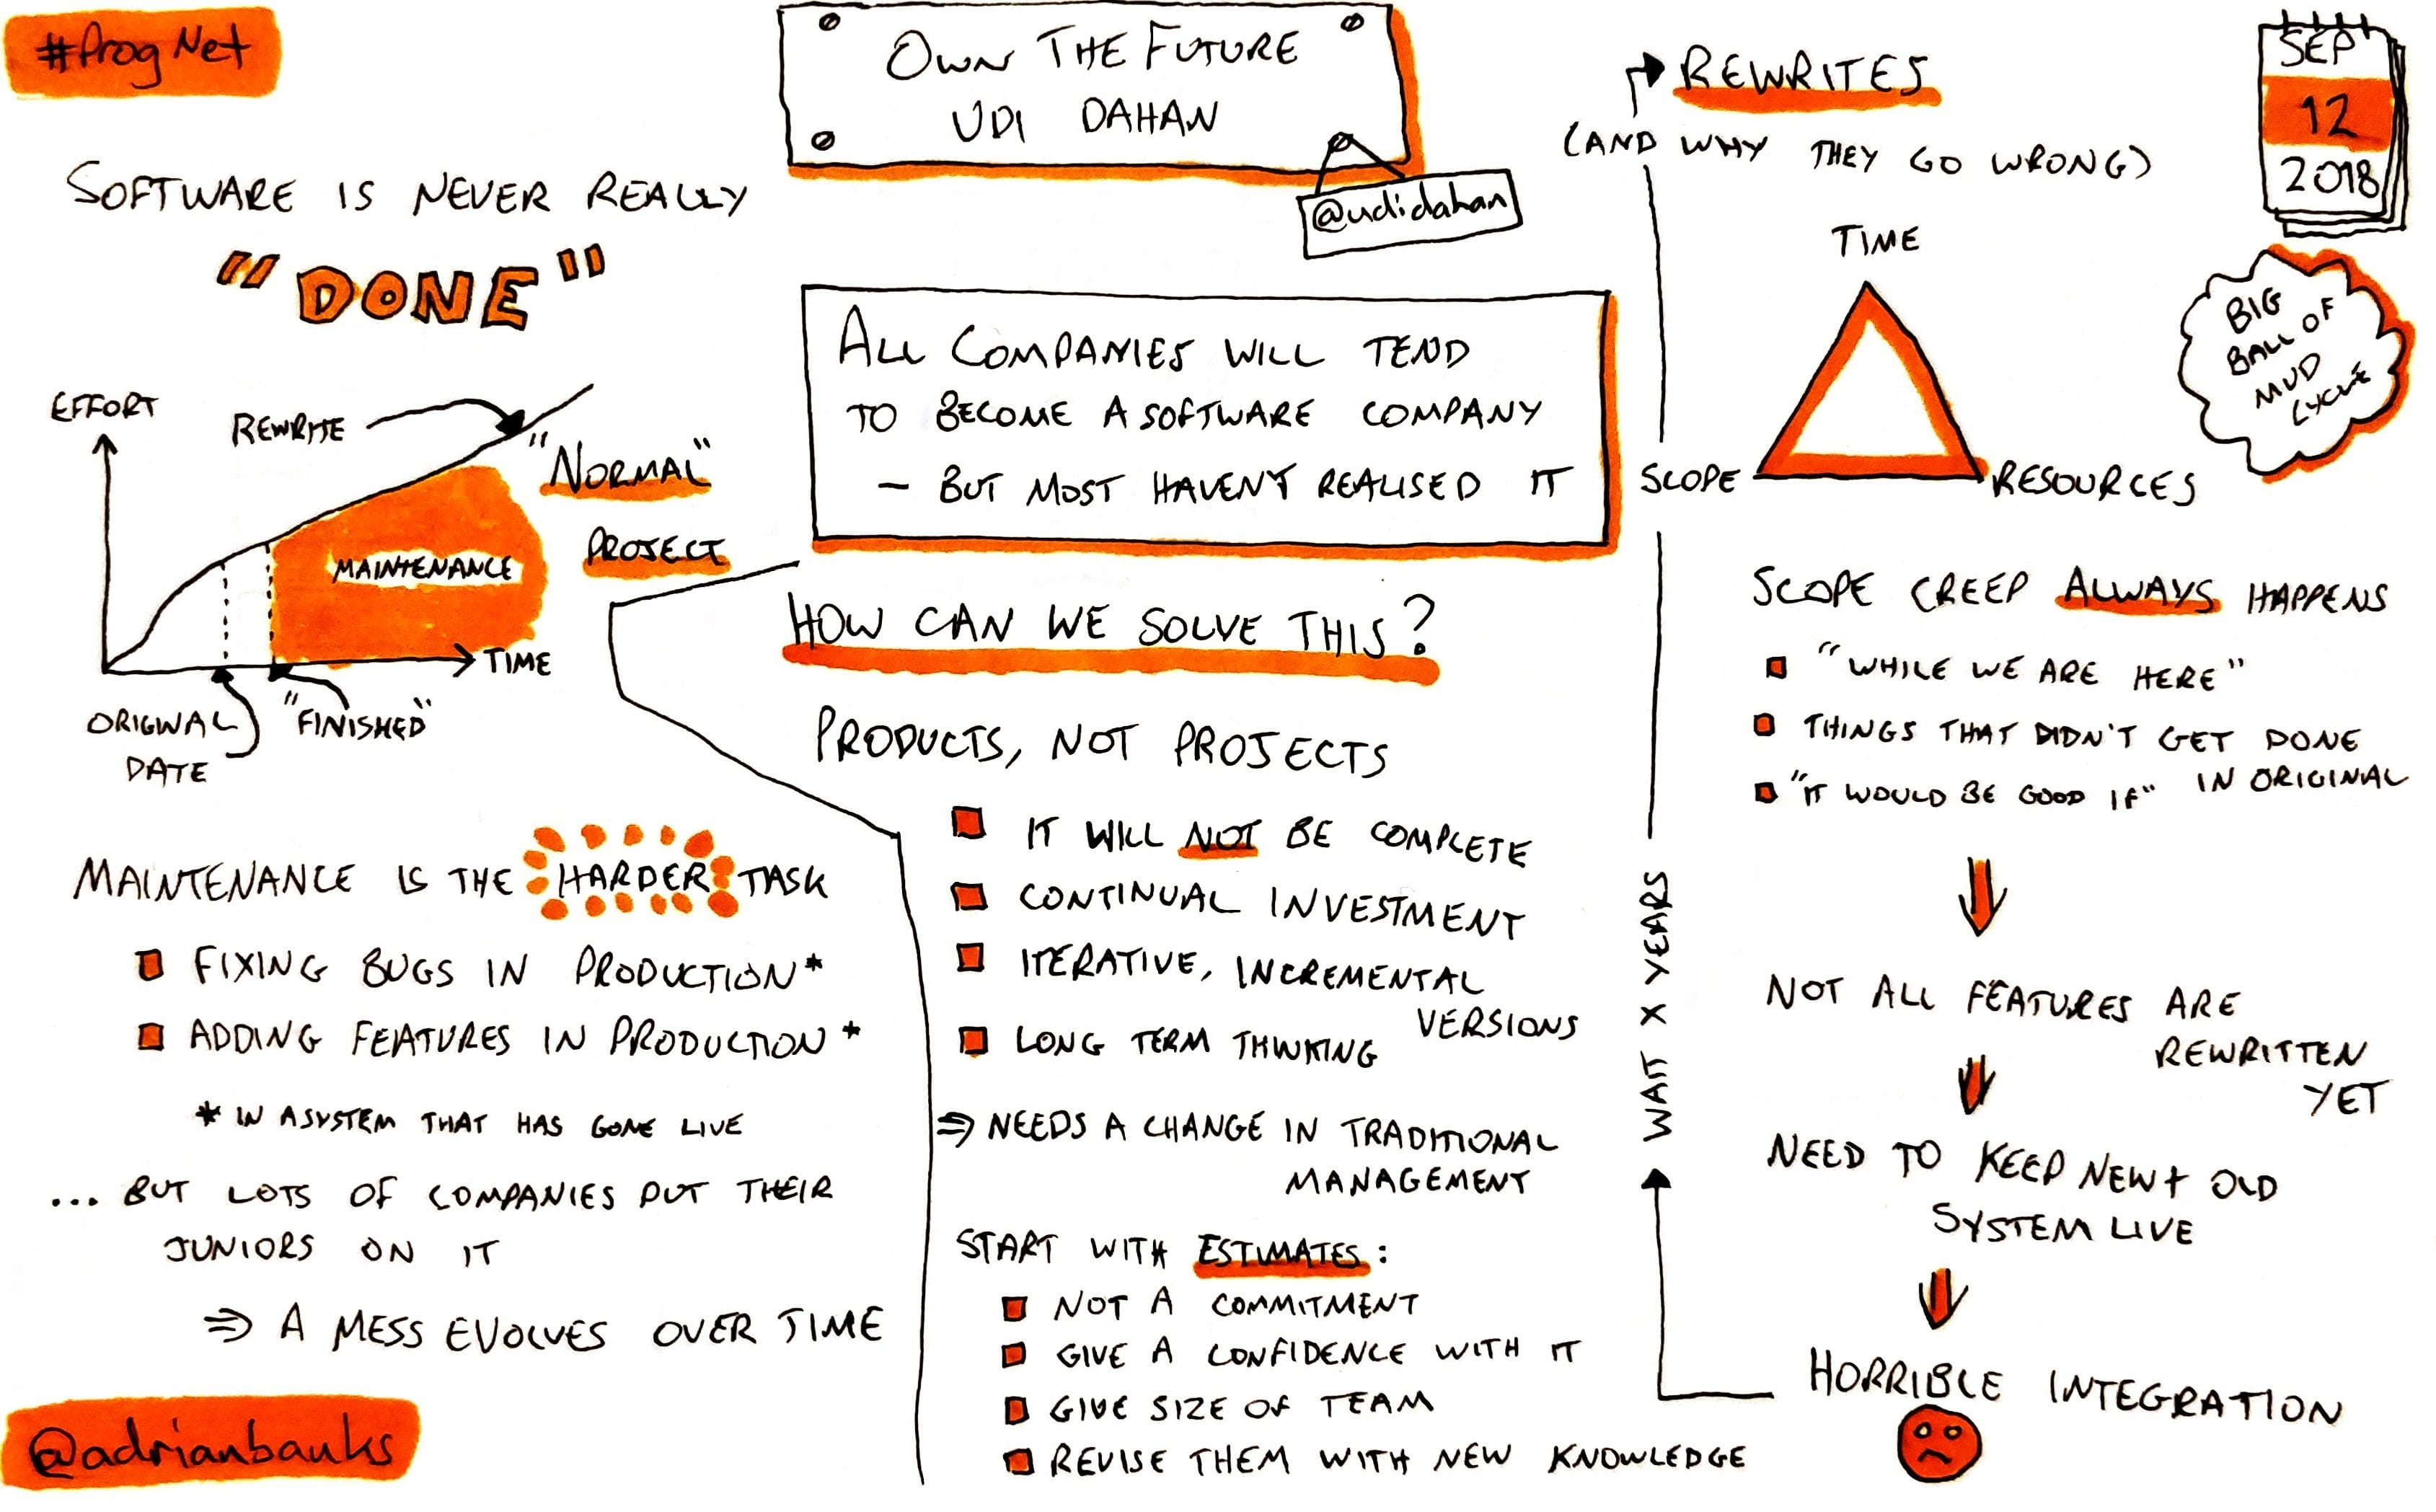 #ProgNet
OWN THE FUTURE
UDI DAHAN
@udidahan
SEP
12
2018
SOFTWARE IS NEVER REALLY
"DONE"
EFFORT
REWRITE
"NORMAL"
PROJECT
MAINTENANCE
TIME
ORIGINAL
DATE
"FINISHED"
MAINTENANCE IS THE HARDER TASK
FIXING BUGS IN PRODUCTION*
ADDING FEATURES IN PRODUCTION*
* IN A SYSTEM THAT HAS GONE LIVE
... BUT LOTS OF COMPANIES PUT THEIR
JUNIORS ON IT
⇒ A MESS EVOLVES OVER TIME
@adrianbanks
ALL COMPANIES WILL TEND
TO BECOME A SOFTWARE COMPANY
- BUT MOST HAVEN'T REALISED IT
HOW CAN WE SOLVE THIS?
PRODUCTS, NOT PROJECTS
IT WILL NOT BE COMPLETE
CONTINUAL INVESTMENT
ITERATIVE, INCREMENTAL
VERSIONS
LONG TERM THINKING
⇒ NEEDS A CHANGE IN TRADITIONAL
MANAGEMENT
START WITH ESTIMATES:
NOT A COMMITMENT
GIVE A CONFIDENCE WITH IT
GIVE SIZE OF TEAM
REVISE THEM WITH NEW KNOWLEDGE
REWRITES
(AND WHY THEY GO WRONG)
BIG
BALL OF
MUD
CYCLE
TIME
SCOPE
RESOURCES
SCOPE CREEP ALWAYS HAPPENS
"WHILE WE ARE HERE"
THINGS THAT DIDN'T GET DONE
IN ORIGINAL
"IT WOULD BE GOOD IF"
NOT ALL FEATURES ARE
REWRITTEN
YET
NEED TO KEEP NEW + OLD
SYSTEM LIVE
HORRIBLE INTEGRATION
WAIT X YEARS